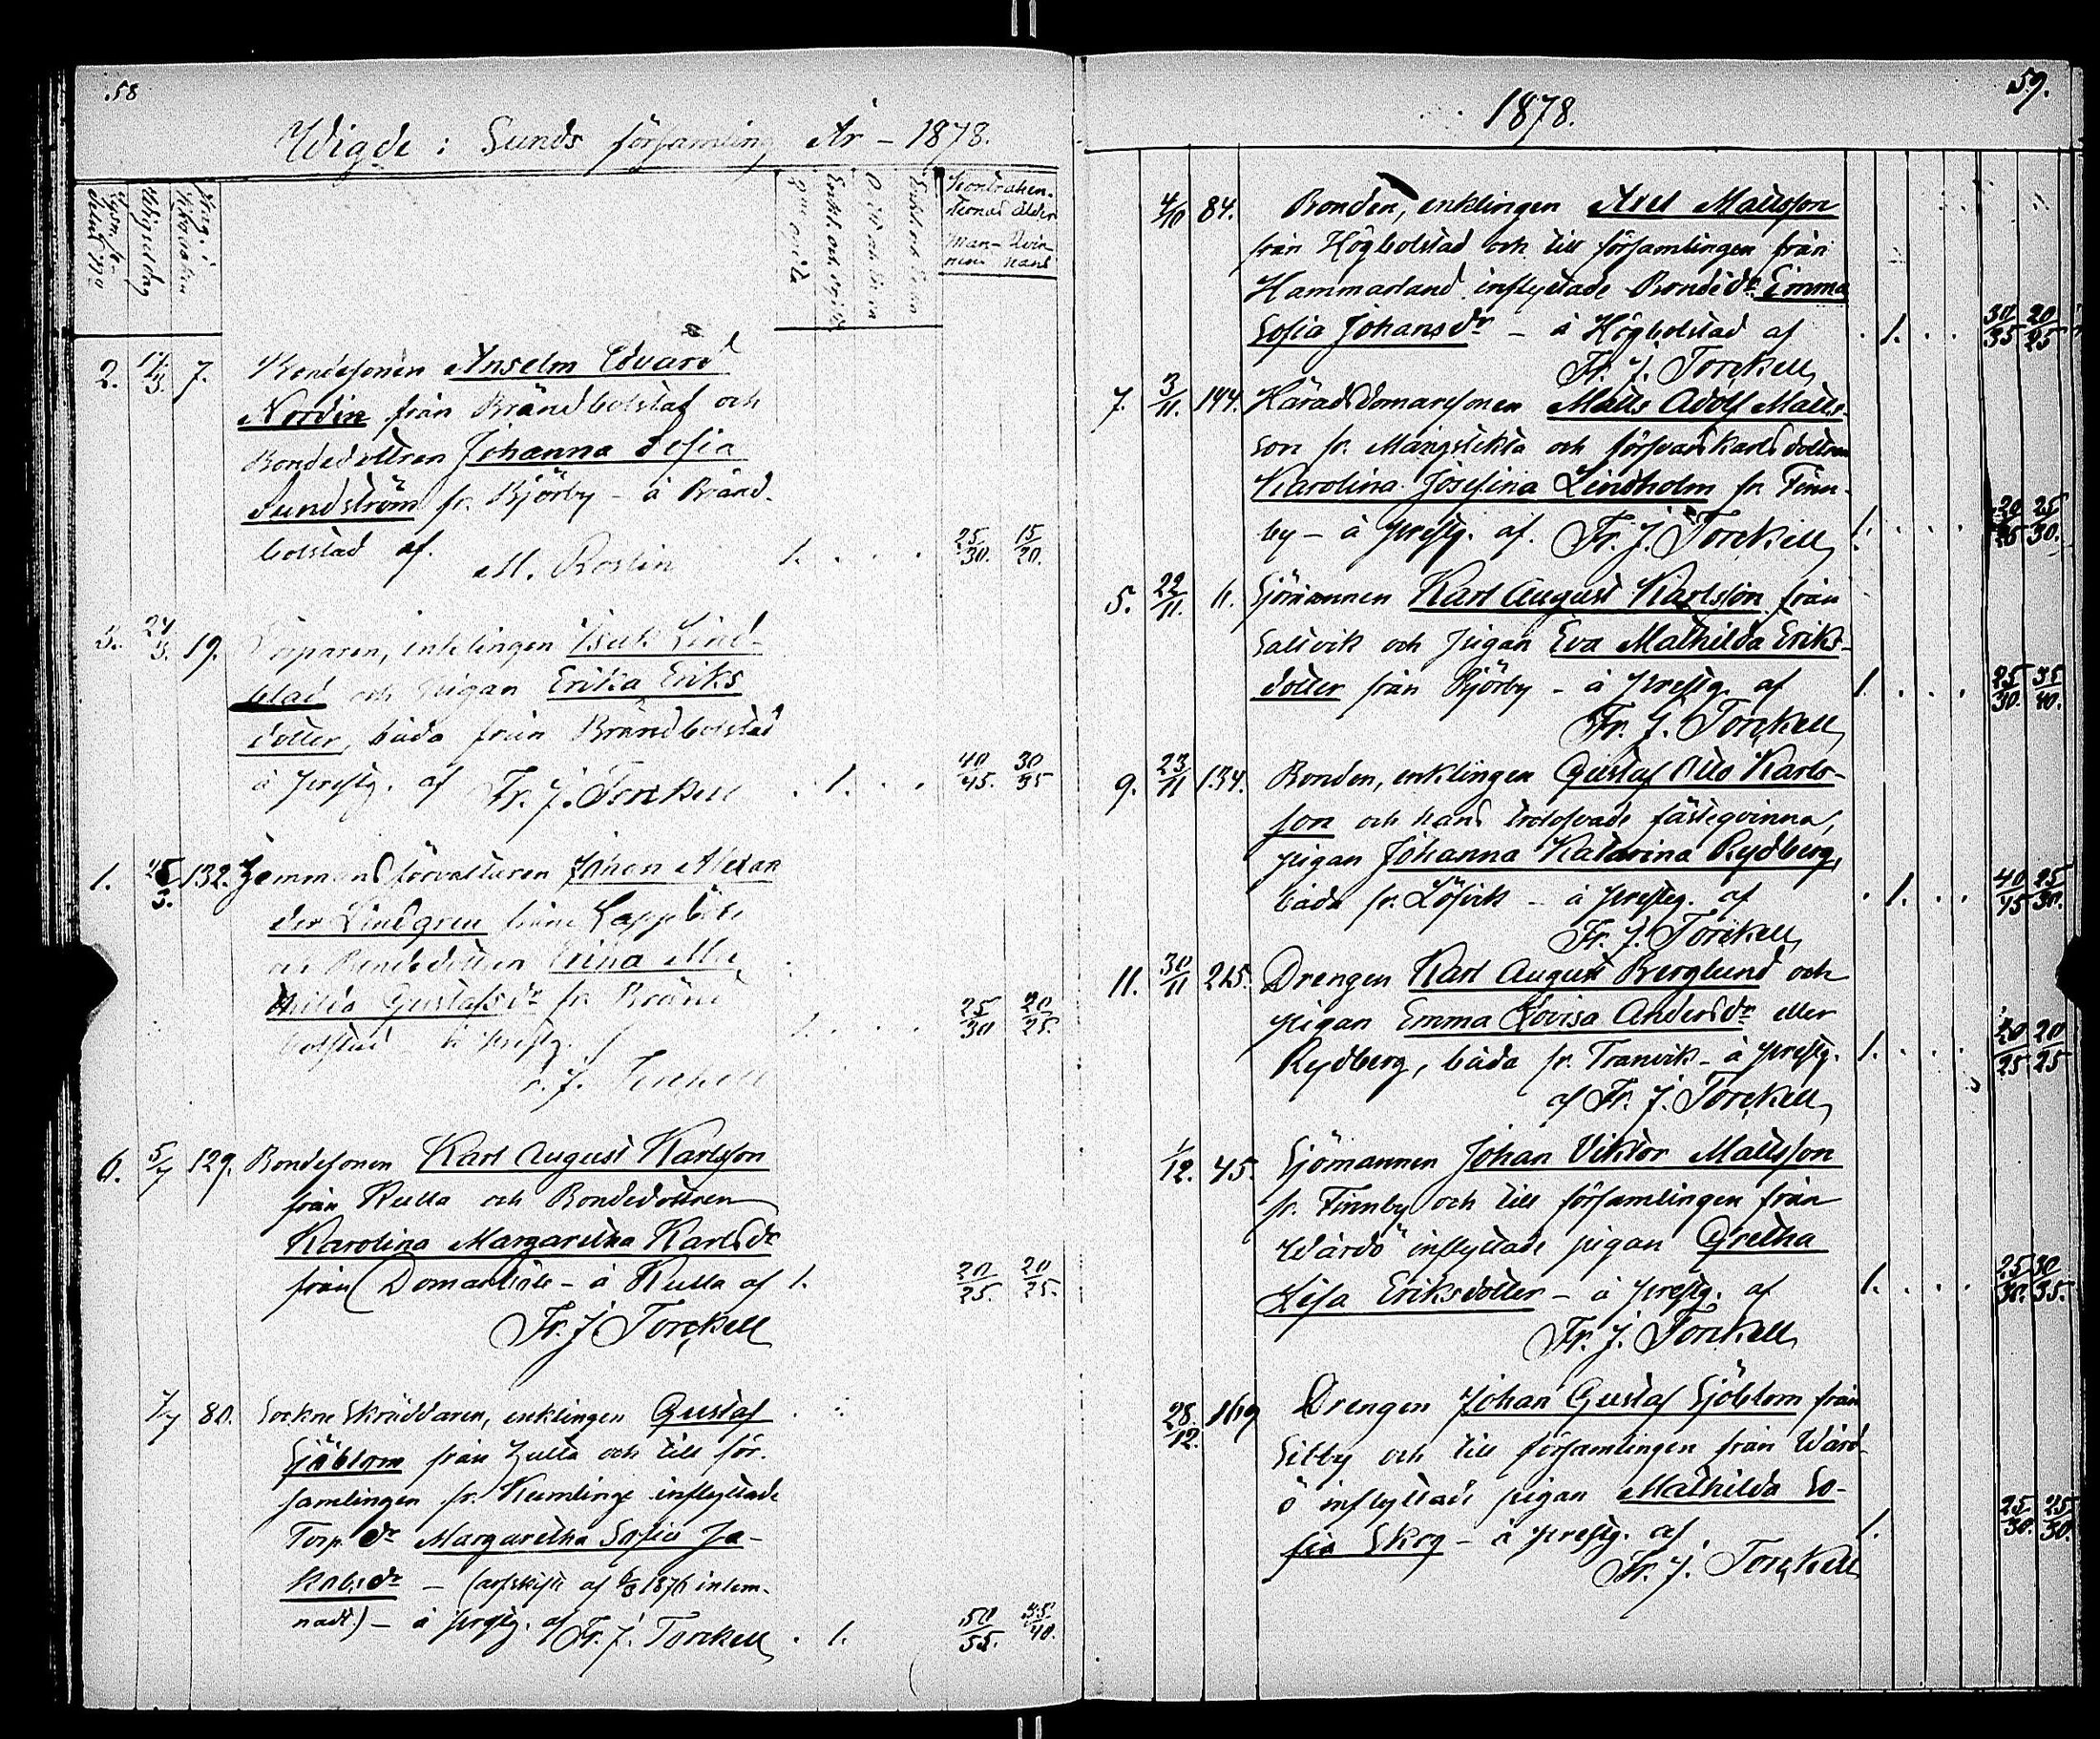 58
Wigde i Sunds församling År - 1878.
Lysnings-
sedel No
Wigseldag
Pag. i
Kyrkoboken
Ogifta
Enkl. och
Kontrahen-
ternas ålder
Man- Qvin-
nens nans
2. 17/3. 7. Bondesonen Anselm Edvard
Nordin från Brändbolstad och
Bondedottren Johanna Sofia
Sundström fr. Björby - å Bränd-
bolstad af M. Rostin 1. . . . 25/30. 15/20.
3. 24/3. 19. Torparen, enklingen Isak Lind-
blad och pigan Erika Eriks
dotter, båda från Brändbolstad
å prestg. af Fr. J. Torckell . 1. . . 40/45. 30/35
1. 25/3. 132. Hemmansförvaltaren Johan Alexan
der Lindgren från Lappböle
och Bondedottren Erina Ma
thilda Gustafsdr fr. Bränd
bolstad å prestg. 1. . . . 25/30 20/25.
Fr. J. Torckell
6. 5/7 129. Bondesonen Karl August Karlsson
från Kulla och Bondedottren
Karolina Margaretha Karlsdr
från Domarböle - å Kulla af 1. 20/25. 20/25.
Fr. J. Torckell
7/7 80. Sockneskräddaren, enklingen Gustaf
Sjöblom från Hulta och till för-
samlingen fr. Kumlinge inflyttade
Torp.dr Margaretha Sofia Ja-
kobsdr - (arfskifte af 6/3 1876 inlem-
nadt) - å prestg. af Fr. J. Torckell . 1. 50/55. 35/40.
59.
1878.
4/10 84. Bonden, enklingen Axel Mattsson
från Högbolstad och till församlingen från
Hammarland inflyttade Bondedr Emma
Sofia Johansdr - å Högbolstad af . 1. . . 30/35 20/25
Fr. J. Torckell
7. 3/11. 144. Häradsdomaresonen Matts Adolf Matts-
son fr. Mångstekta och försvarskarlsdottren
Karolina Josefina Lindholm fr. Finn-
by - å prestg. af. Fr. J. Torckell 1. . . . 20/25 25/30.
5. 22/11. 11. Sjömannen Karl August Karlsson från
Saltvik och pigan Eva Mathilda Eriks-
dotter från Björby - å prestg. af 1. . . . 25/30. 35/40.
Fr. J. Torckell
9. 23/11 134. Bonden, enklingen Gustaf Otto Karls-
son och hans trolofvade fästeqvinna,
pigan Johanna Katarina Rydberg,
båda fr. Löfvik - å prestg. af . 1. . . 40/45 25/30.
Fr. J. Torckell
11. 30/11 215. Drengen Karl August Berglund och
pigan Emma Lovisa Andersdr eller
Rydberg, båda fr. Tranvik - å prestg. 1. . . . 20/25 20/25
af Fr. J. Torckell
1/12. 45. Sjömannen Johan Viktor Mattsson
fr. Finnby och till församlingen från
Wårdö inflyttade pigan Gretha
Lisa Eriksdotter - å prestg. af 1. . . . 25/30. 30/35.
Fr. J. Torckell
28/12. 169 Drengen Johan Gustaf Sjöblom från
Sibby och till församlingen från Wård-
ö inflyttade pigan Mathilda So-
fia Skog - å prestg. af 1. 25/30. 25/30.
Fr. J. Torckell